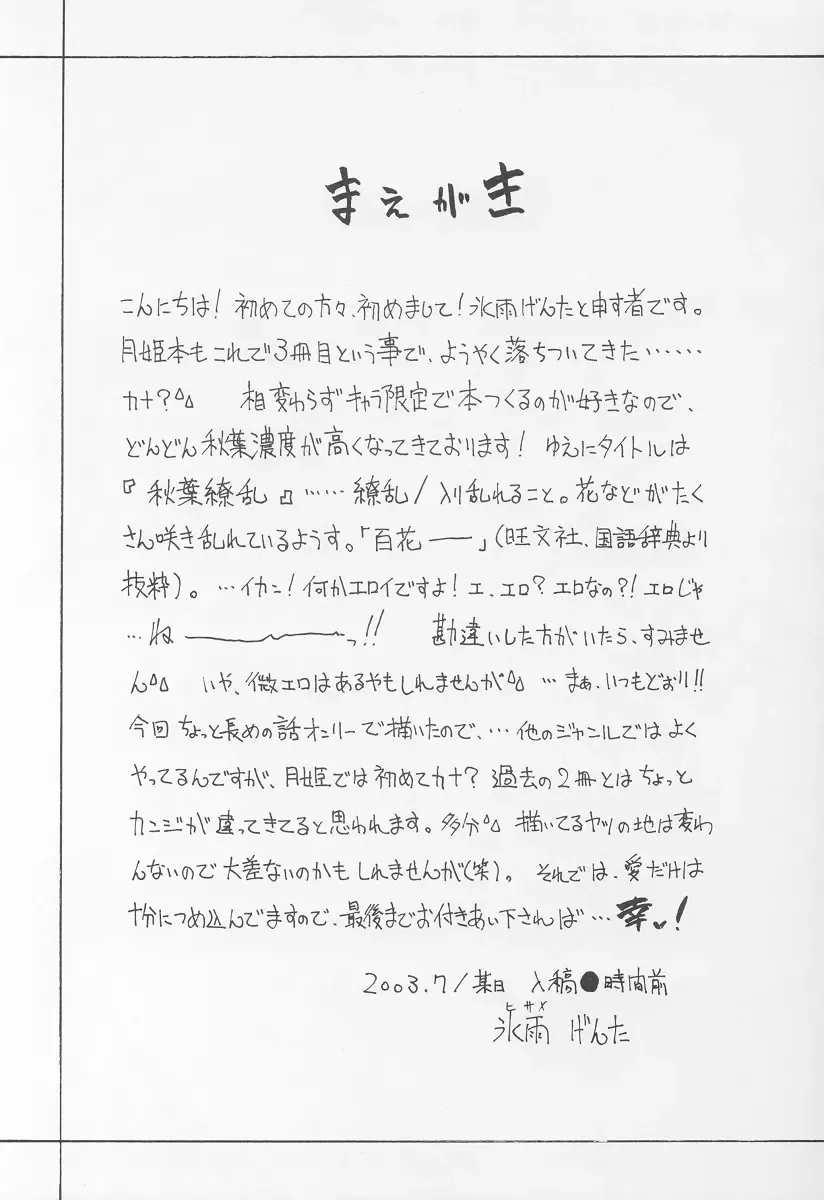 まえがき
こんにちは！初めての方々、初めまして！氷雨げんたと申す者です。
月姫本もこれで3冊目という事で、ようやく落ちついてきた……
カナ？^^ 相変わらずキャラ限定で本つくるのが好きなので、
どんどん秋葉濃度が高くなってきております！ ゆえにタイトルは
『秋葉繚乱』……繚乱/入り乱れること。花などがたく
さん咲き乱れているようす。「百花――」(旺文社、国語辞典より
抜粋)。…イカン！何かエロイですよ！エ、エロ？エロなの？！エロじゃ
…ね――――っ!! 勘違いした方がいたら、すみませ
ん^^ いや、微エロはあるやもしれませんが^^ …まぁ、いつもどおり!!
今回ちょっと長めの話オンリーで描いたので、…他のジャンルではよく
やってるんですが、月姫では初めてカナ？過去の2冊とはちょっと
カンジが違ってきてると思われます。多分^^ 描いてるヤツの地は変わ
んないので大差ないのかもしれませんが(笑)。それでは、愛だけは
十分につめ込んでますので、最後までお付きあい下されば…幸♥！
2003.7/某日 入稿●時間前
ヒサメ
氷雨 げんた